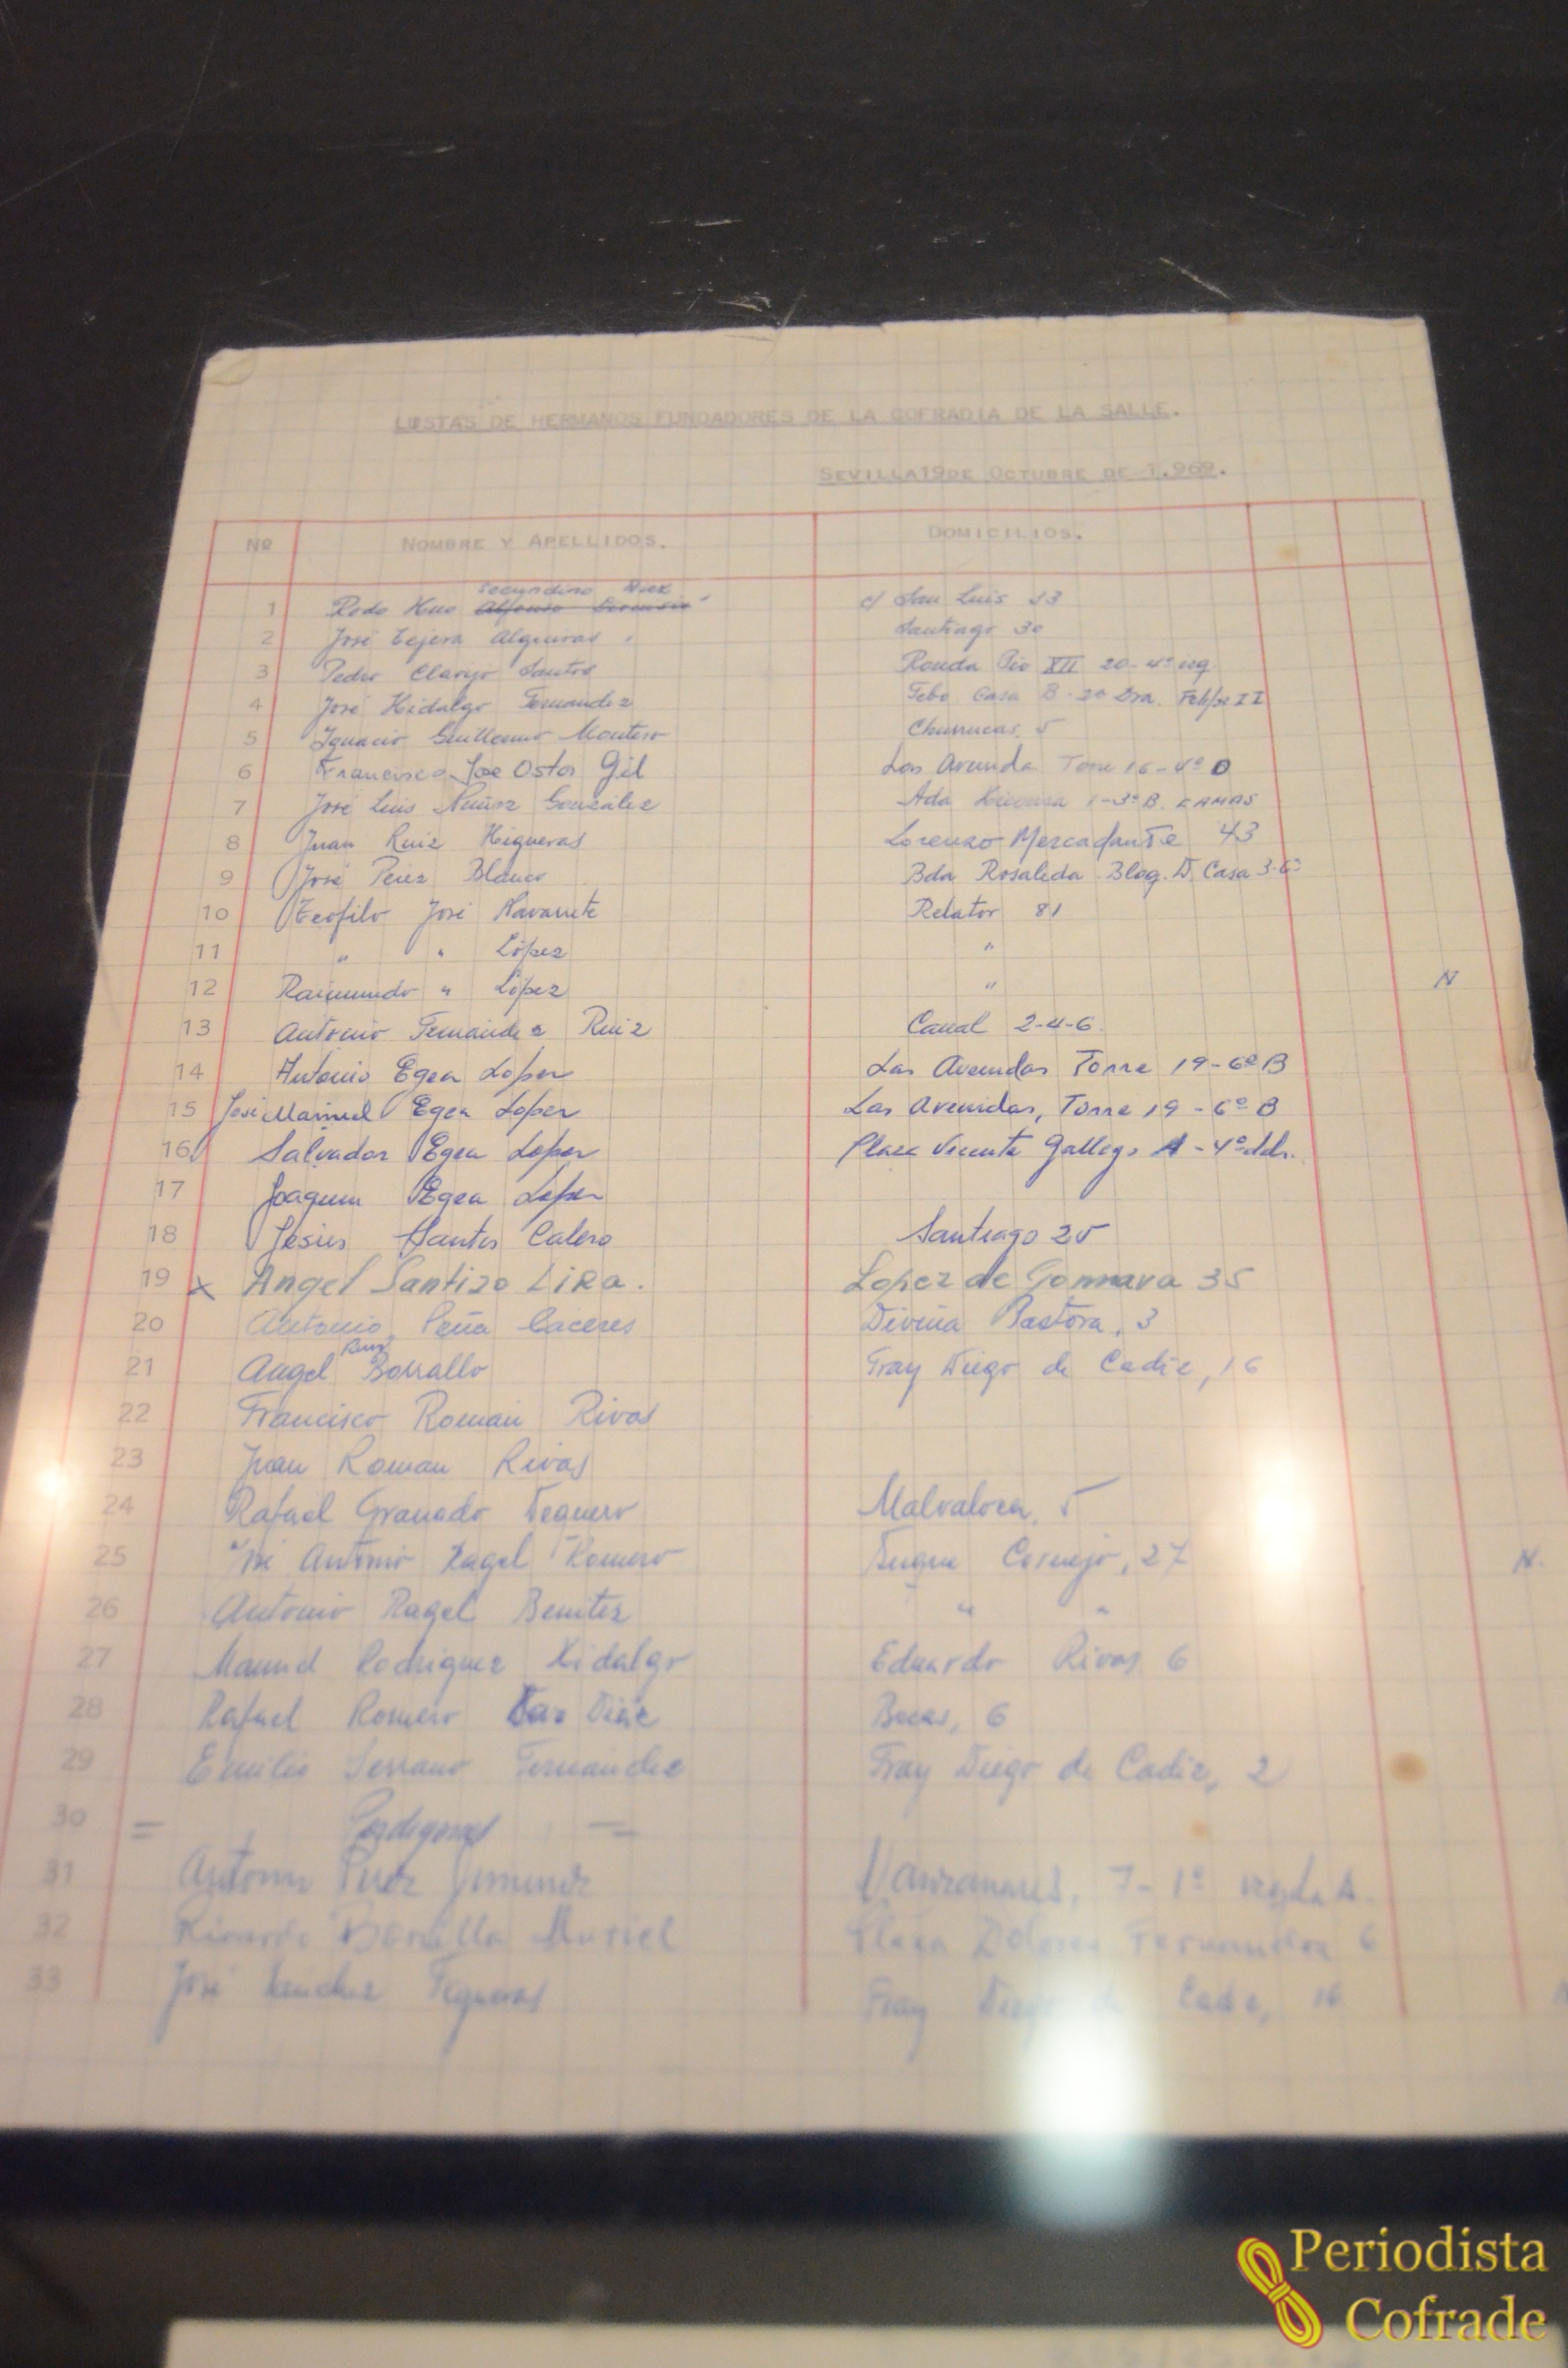 LISTAS DE HERMANOS FUNDADORES DE LA COFRADIA DE LA SALLE.
SEVILLA 19 DE OCTUBRE DE 1.969.
Nº NOMBRE Y APELLIDOS. DOMICILIOS.
Secundino
1 Rvdo Hno Alfonso c/ San Luis 33
2 José Tejera Algueras Santiago 30
3 Pedro Clavijo Santos Ronda Pio XII 20-4º izq.
4 José Hidalgo Fernandez Febo Casa B-2º Dra. Felipe II
5 Ignacio Guillermo Montero Churruca, 5
6 Francisco Jose Ostos Gil Las Avenida Torre 16-4º D
7 José Luis Núñez González Ada 1-3º B. CAMAS
8 Juan Ruiz Higueras Lorenzo Mercadante 43
9 José Pérez Blanco Bda Rosaleda Bloq. D. Casa 3-6º
10 Teofilo José Navarrete Relator 81
11 " " López "
12 Raimundo " López " N
13 Antonio Fernández Ruiz Canal 2-4-6.
14 Antonio Egea Lopez Las Avenidas Torre 19-6º B
15 José Manuel Egea Lopez Las Avenidas, Torre 19-6º B
16 Salvador Egea Lopez Plaza Vicente Gallego A-4º
17 Joaquin Egea Lopez
18 Jesús Santos Calero Santiago 25
19 x Angel Santizo LiRa. Lopez de Gomara 35
20 Antonio Peña Cáceres Divina Pastora, 3
Ruiz
21 Angel Borrallo Fray Diego de Cadiz, 16
22 Francisco Román Rivas
23 Juan Roman Rivas
24 Rafael Granado Malvaloca, 5
25 José Antonio Ragel Romero Duque Cornejo, 27 N.
26 Antonio Ragel Benitez " "
27 Manuel Rodriguez Hidalgo Eduardo Rivas 6
28 Rafael Romero Diaz 6
29 Emilio Serrano Fernandez Fray Diego de Cadiz, 2
30 = Perdigones =
31 Antonio Perez Jimenez Manzanares, 7-1º A.
32 Ricardo Bonilla Muriel Plaza Dolores Fernandez 6
33 José Sanchez Fray Diego de Cadiz, 16
Periodista
Cofrade